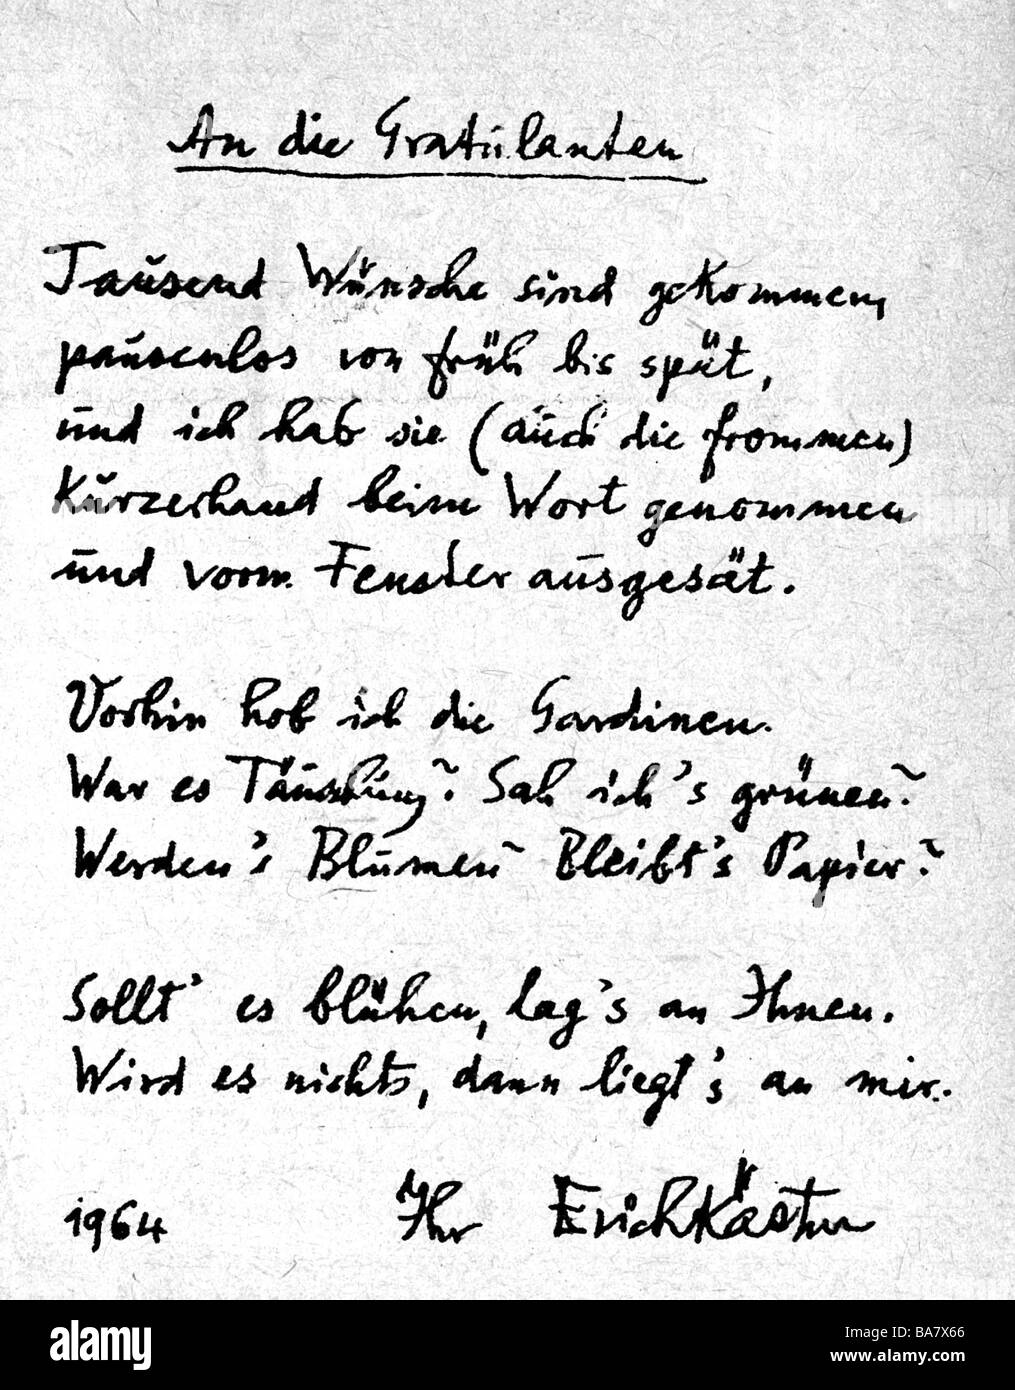 An die Gratulanten
Tausend Wünsche sind gekommen,
pausenlos von früh bis spät,
und ich hab sie (auch die frommen)
kurzerhand beim Wort genommen
und vorm Fenster ausgesät.
Vorhin hob ich die Gardinen.
War es Täuschung? Sah ich's grünen?
Werden's Blumen? Bleibt's Papier?
Sollt' es blühen, lag's an Ihnen.
Wird es nichts, dann liegt's an mir.
1964 Ihr Erich Kästner
alamy
Image ID: BA7X66
www.alamy.com